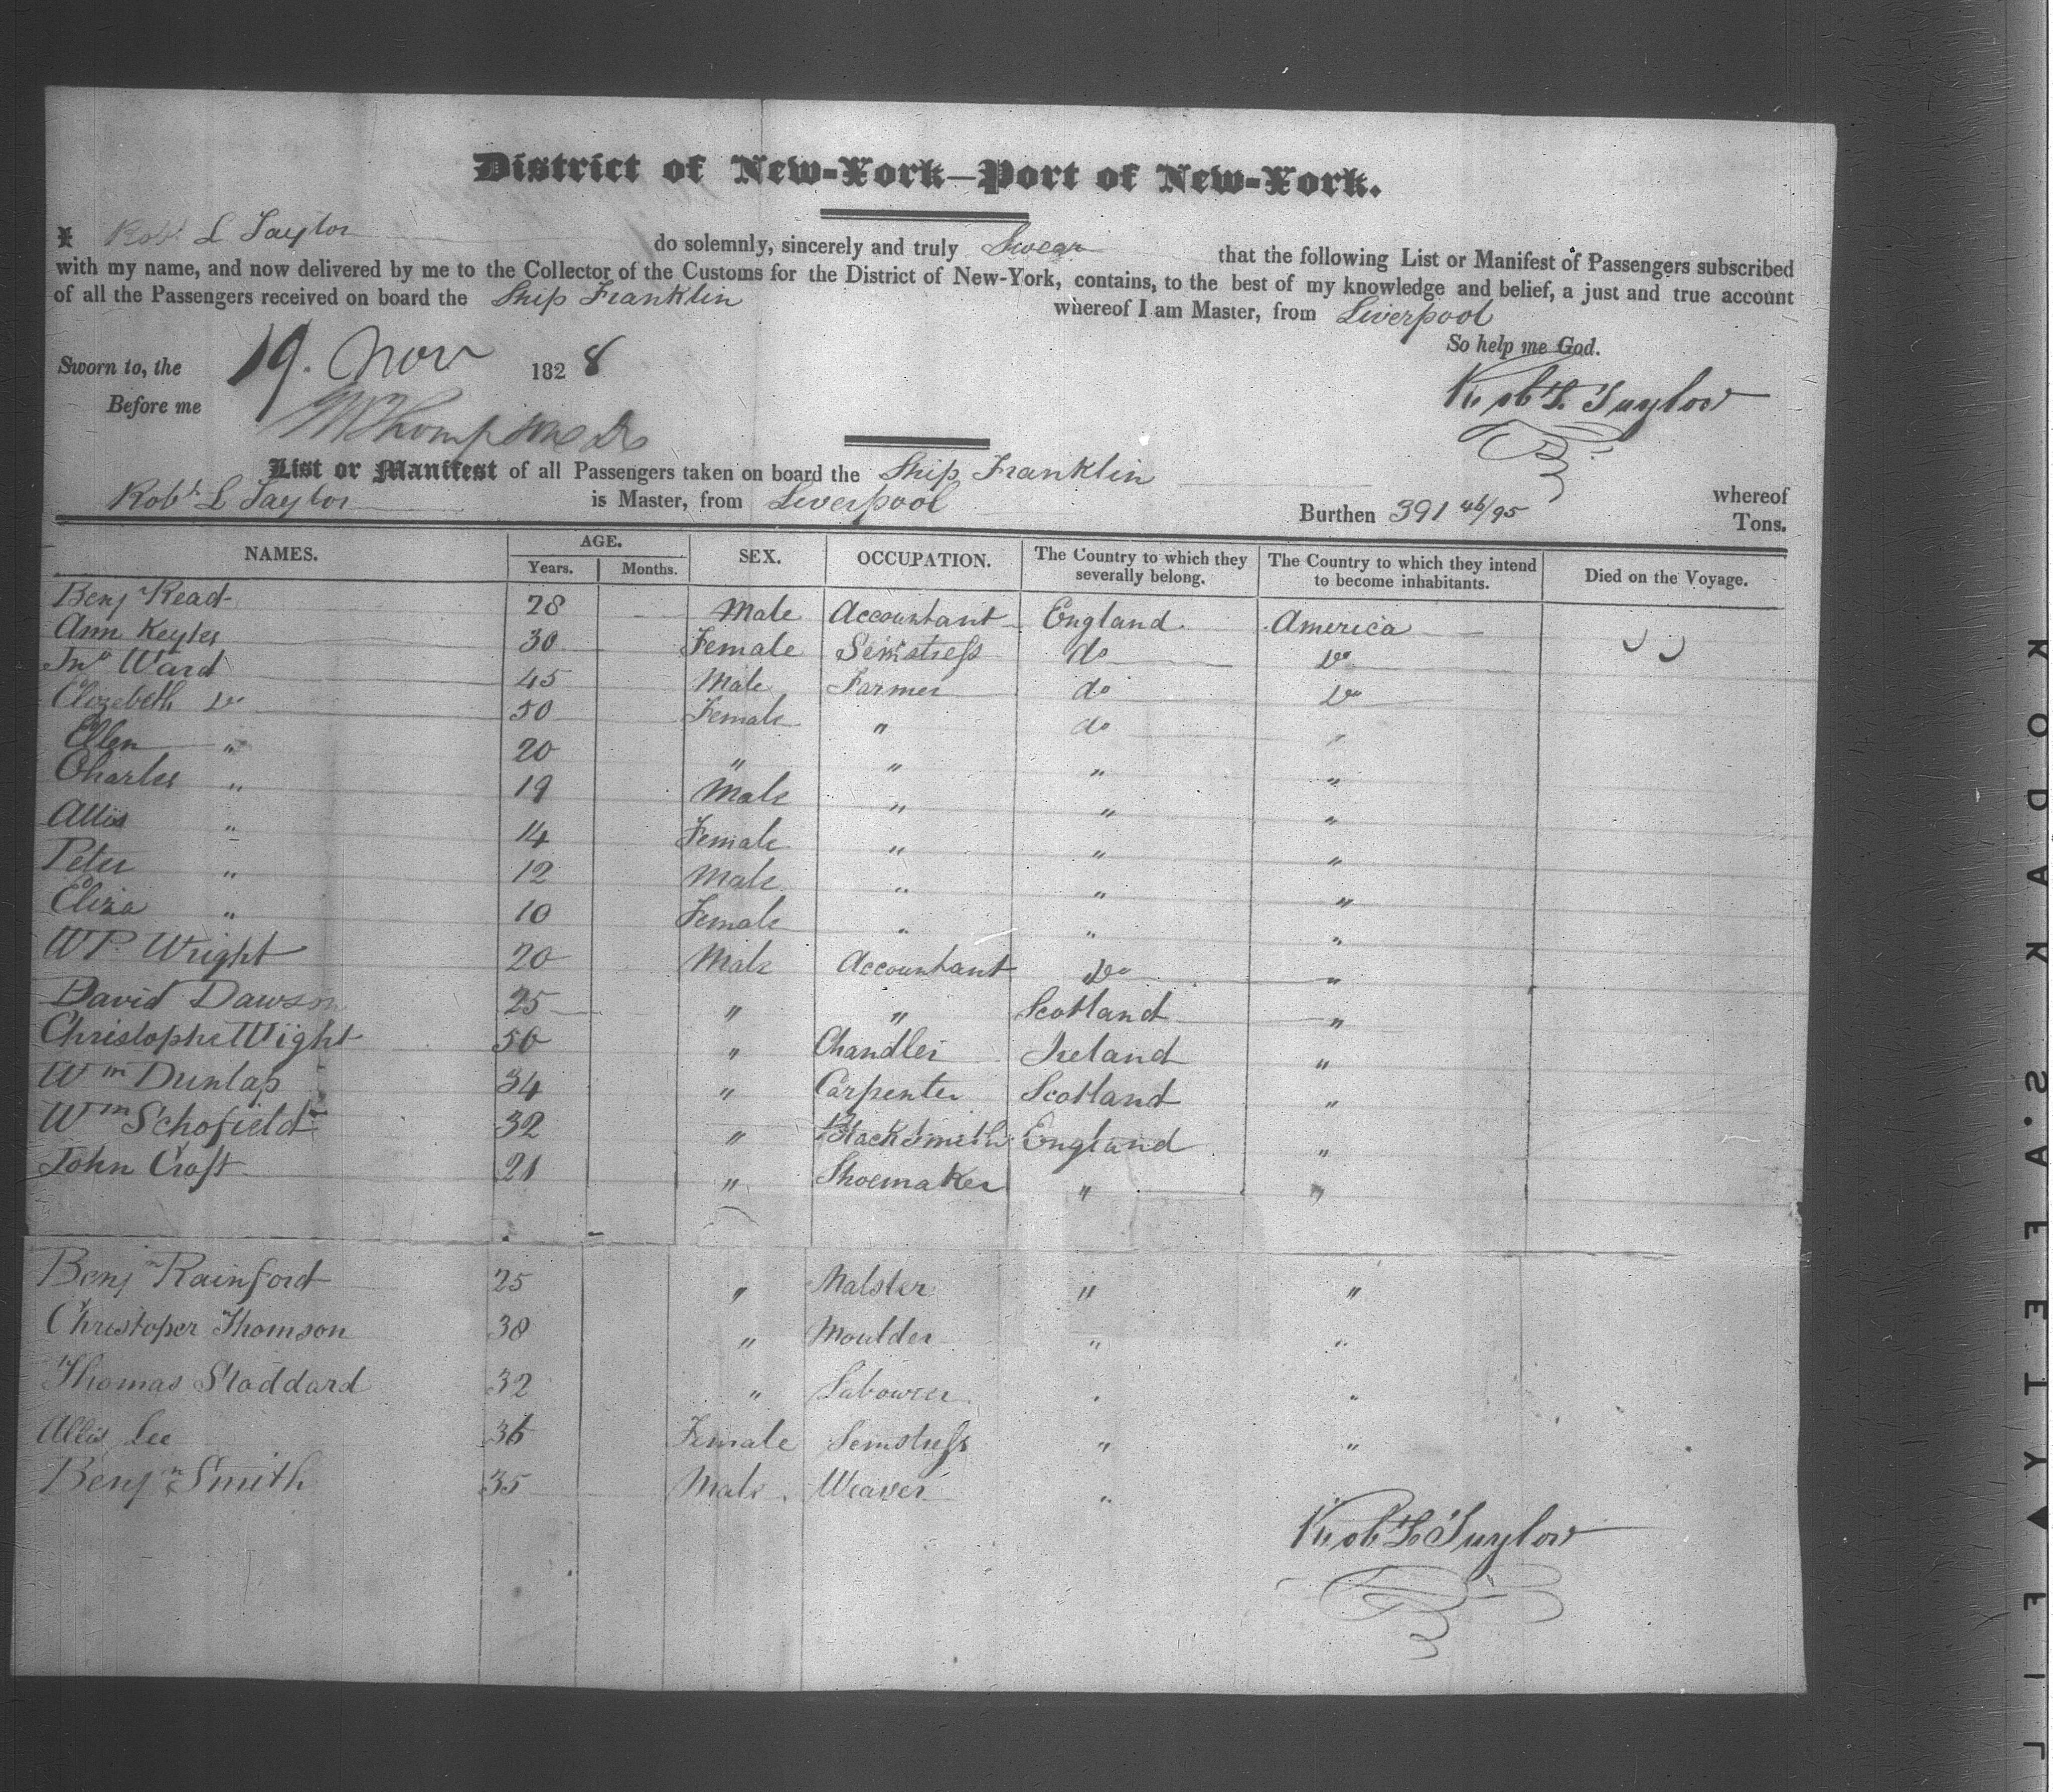 District of New-York—Port of New-York.
I Robt L Taylor do solemnly, sincerely and truly Swear that the following List or Manifest of Passengers subscribed
with my name, and now delivered by me to the Collector of the Customs for the District of New-York, contains, to the best of my knowledge and belief, a just and true account
of all the Passengers received on board the Ship Franklin whereof I am Master, from Liverpool
So help me God.
Sworn to, the 19. Nov 1828
Robt L. Taylor
Before me
List or Manifest of all Passengers taken on board the Ship Franklin whereof
Robt L Taylor is Master, from Liverpool Burthen 391 46/95 Tons.
NAMES. AGE. Years. Months. SEX. OCCUPATION. The Country to which they severally belong. The Country to which they intend to become inhabitants. Died on the Voyage.
Benj n Read 28 Male Accountant England America
Ann Keyles 30 Female Semstress do Do
Jno Ward 45 Male Farmer do Do
Elizebeth Do 50 Female " do "
Ellen " 20 " " " "
Charles " 19 Male " " "
Allis " 14 Female " " "
Peter " 12 Male " " "
Eliza " 10 Female " " "
W P. Wright 20 Male Accountant Do "
David Dawson 25 " " Scotland "
Christophe Wight 50 " Chandler Ireland "
Wm Dunlap 34 " Carpenter Scotland "
Wm Schofield 32 " Blacksmith England "
John Croft 21 " Shoemaker " "
Benjn Rainford 25 " Malster " "
Christoper Thomson 30 " Moulder " "
Thomas Stoddard 32 " Labourer " "
Allis Lee 36 Female Semstress " "
Benjn Smith 35 Male Weaver "
Robt L Taylor
KODAK S.AFETY ▲ FIL